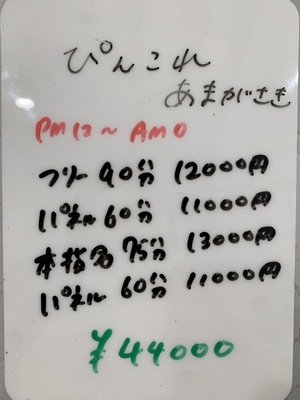 ぴんこれ
あまがさき
PM12～AM0
フリー90分 12000円
パネル60分 11000円
本指名75分 13000円
パネル 60分 11000円
¥44000